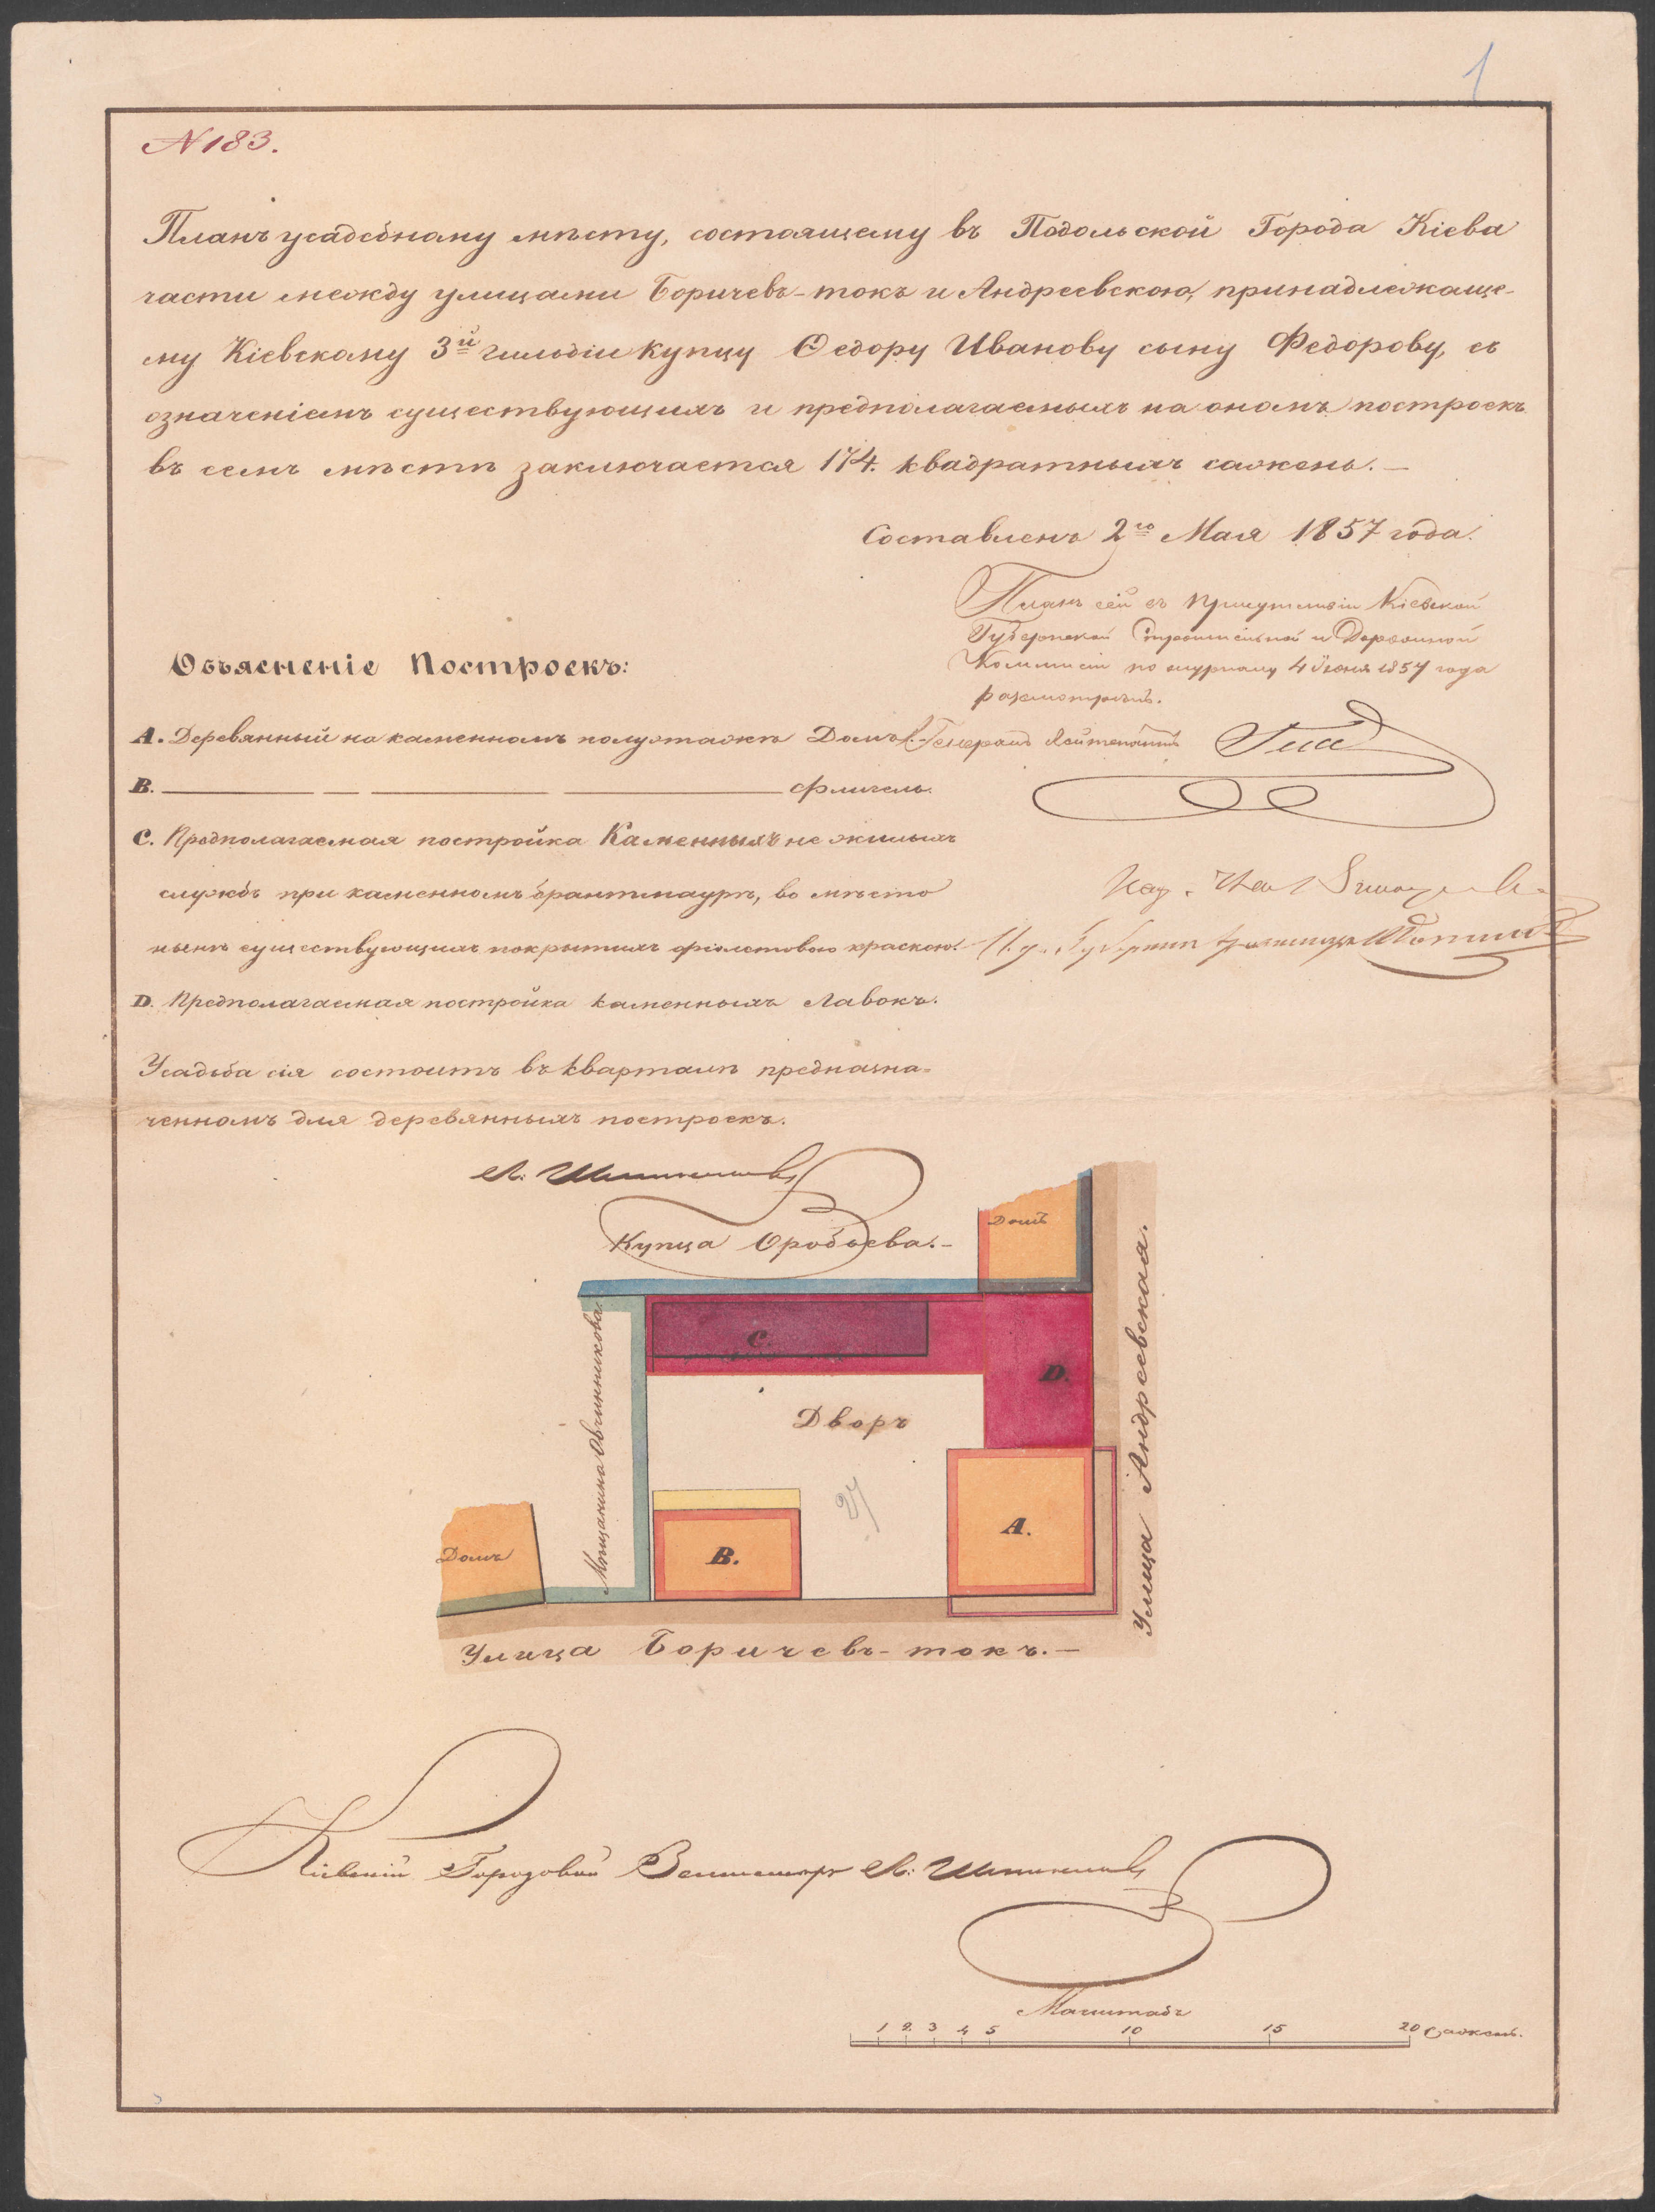 1
N 183.
Планъ усадебному мѣсту, состоящему въ Подольской Города Кіева
части между улицами Боричевъ-токъ и Андреевскою, принадлежаще-
му Кіевскому 3й гильдіи купцу Ѳедору Иванову сыну Федорову, съ
означеніемъ существующихъ и предполагаемыхъ на ономъ построекъ
въ семъ мѣстѣ заключается 174. квадратныхъ сажень.—
Составленъ 2го Мая 1857 года.
Планъ сей въ присутствіи Кіевской
Губернской Строительной и Дорожной
Коммисіи по журналу 4 Іюня 1857 года
разсмотрѣнъ.
Генералъ Лейтенантъ
Объясненіе Построекъ:
A. Деревянный на каменномъ полуэтажѣ Домъ.
B. — — — — флигель.
C. Предполагаемая постройка Каменныхъ не жилыхъ
службъ при каменномъ брантмаурѣ, во мѣсто
нынѣ существующихъ покрытыхъ фіолетовою краскою.
D. Предполагаемая постройка каменныхъ Лавокъ.
Усадьба сія состоитъ въ кварталѣ предназна=
ченномъ для деревянныхъ построекъ.
Купца Оробьева.—
Домъ
Мѣщанина Овчинникова.
C.
D.
Дворъ
27
A.
B.
Домъ
Улица Андреевская.
Улица Боричевъ-токъ.—
Кіевскій Городовой Землемѣръ
Масштабъ
1 2 3 4 5 10 15 20 Сажень.